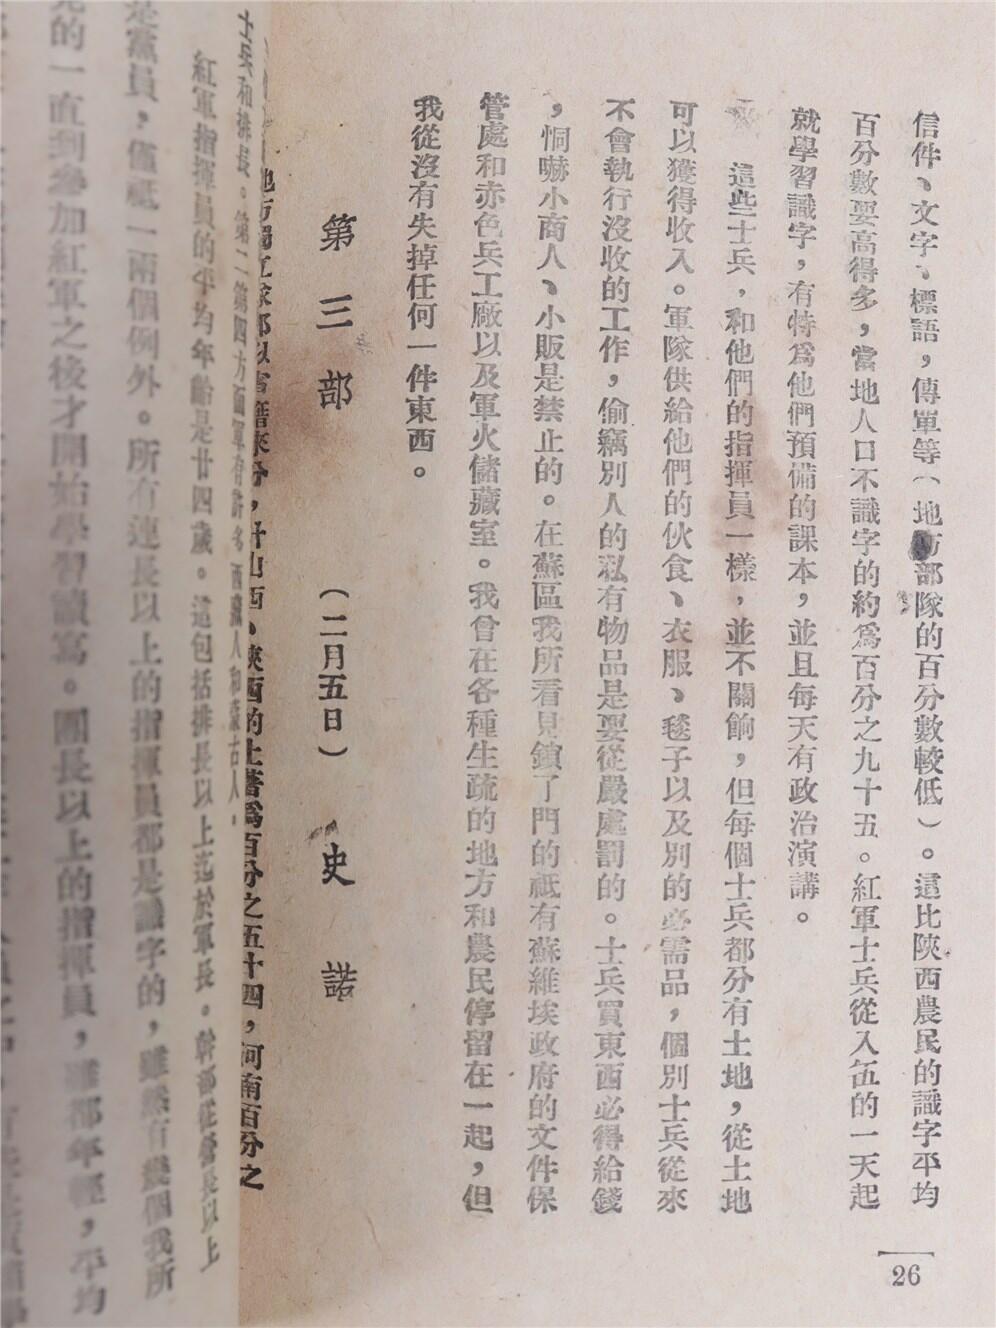 信件、文字、標語，傳單等（地方部隊的百分數較低）。這比陝西農民的識字平均
百分數要高得多，當地人口不識字的約爲百分之九十五。紅軍士兵從入伍的一天起
就學習識字，有特爲他們預備的課本，並且每天有政治演講。
這些士兵，和他們的指揮員一樣，並不關餉，但每個士兵都分有土地，從土地
可以獲得收入。軍隊供給他們的伙食、衣服、毯子以及別的必需品，個別士兵從來
不會執行沒收的工作，偷竊別人的私有物品是要從嚴處罰的。士兵買東西必得給錢
，恫嚇小商人、小販是禁止的。在蘇區我所看見鎖了門的祗有蘇維埃政府的文件保
管處和赤色兵工廠以及軍火儲藏室。我曾在各種生疏的地方和農民停留在一起，但
我從沒有失掉任何一件東西。
第三部（二月五日）史諾
26
來分，計山西、陝西的土著爲百分之五十四，河南百分之
士兵和排長。第二第四方面軍有許多西藏人和蒙古人。
紅軍指揮員的平均年齡是廿四歲。這包括排長以上迄於軍長。幹部從營長以上
是黨員，僅祗一兩個例外。所有連長以上的指揮員都是識字的，雖然有幾個我所
的一直到參加紅軍之後才開始學習讀寫。團長以上的指揮員，雖都年輕，平均